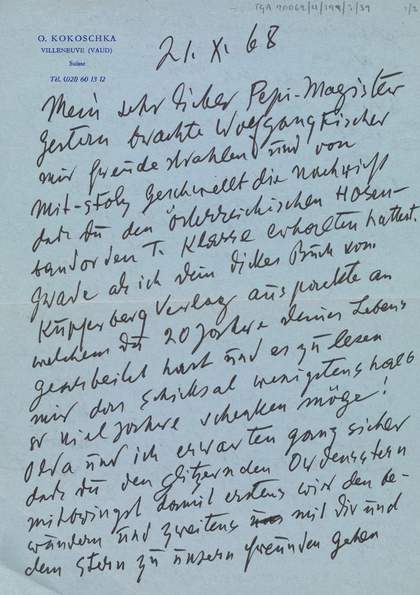 TGA 20069/4/199/2/39 1/2
O. KOKOSCHKA
VILLENEUVE (VAUD)
Suisse
Tél. (021) 60 13 12
21. XI. 68
Mein sehr lieber Pepi-Magister
Gestern brachte Wolfgang Fischer
mir freudestrahlend und von
Mit-stolz geschwellt die Nachricht
dass Du den Österreichischen Hosen-
bandorden I. Klasse erhalten hattest.
Grade als ich Dein dickes Buch vom
Kupferberg Verlag auspackte an
welchem Du 20 Jahre deines Lebens
gearbeitet hast und es zu lesen
mir das Schicksal wenigstens halb
so viel Jahre schenken möge!
Olda und ich erwarten ganz sicher
dass Du den glitzernden Ordensstern
mitbringst damit erstens wir den be-
wundern und zweitens mit Dir und
dem Stern zu unsern Freunden gehen